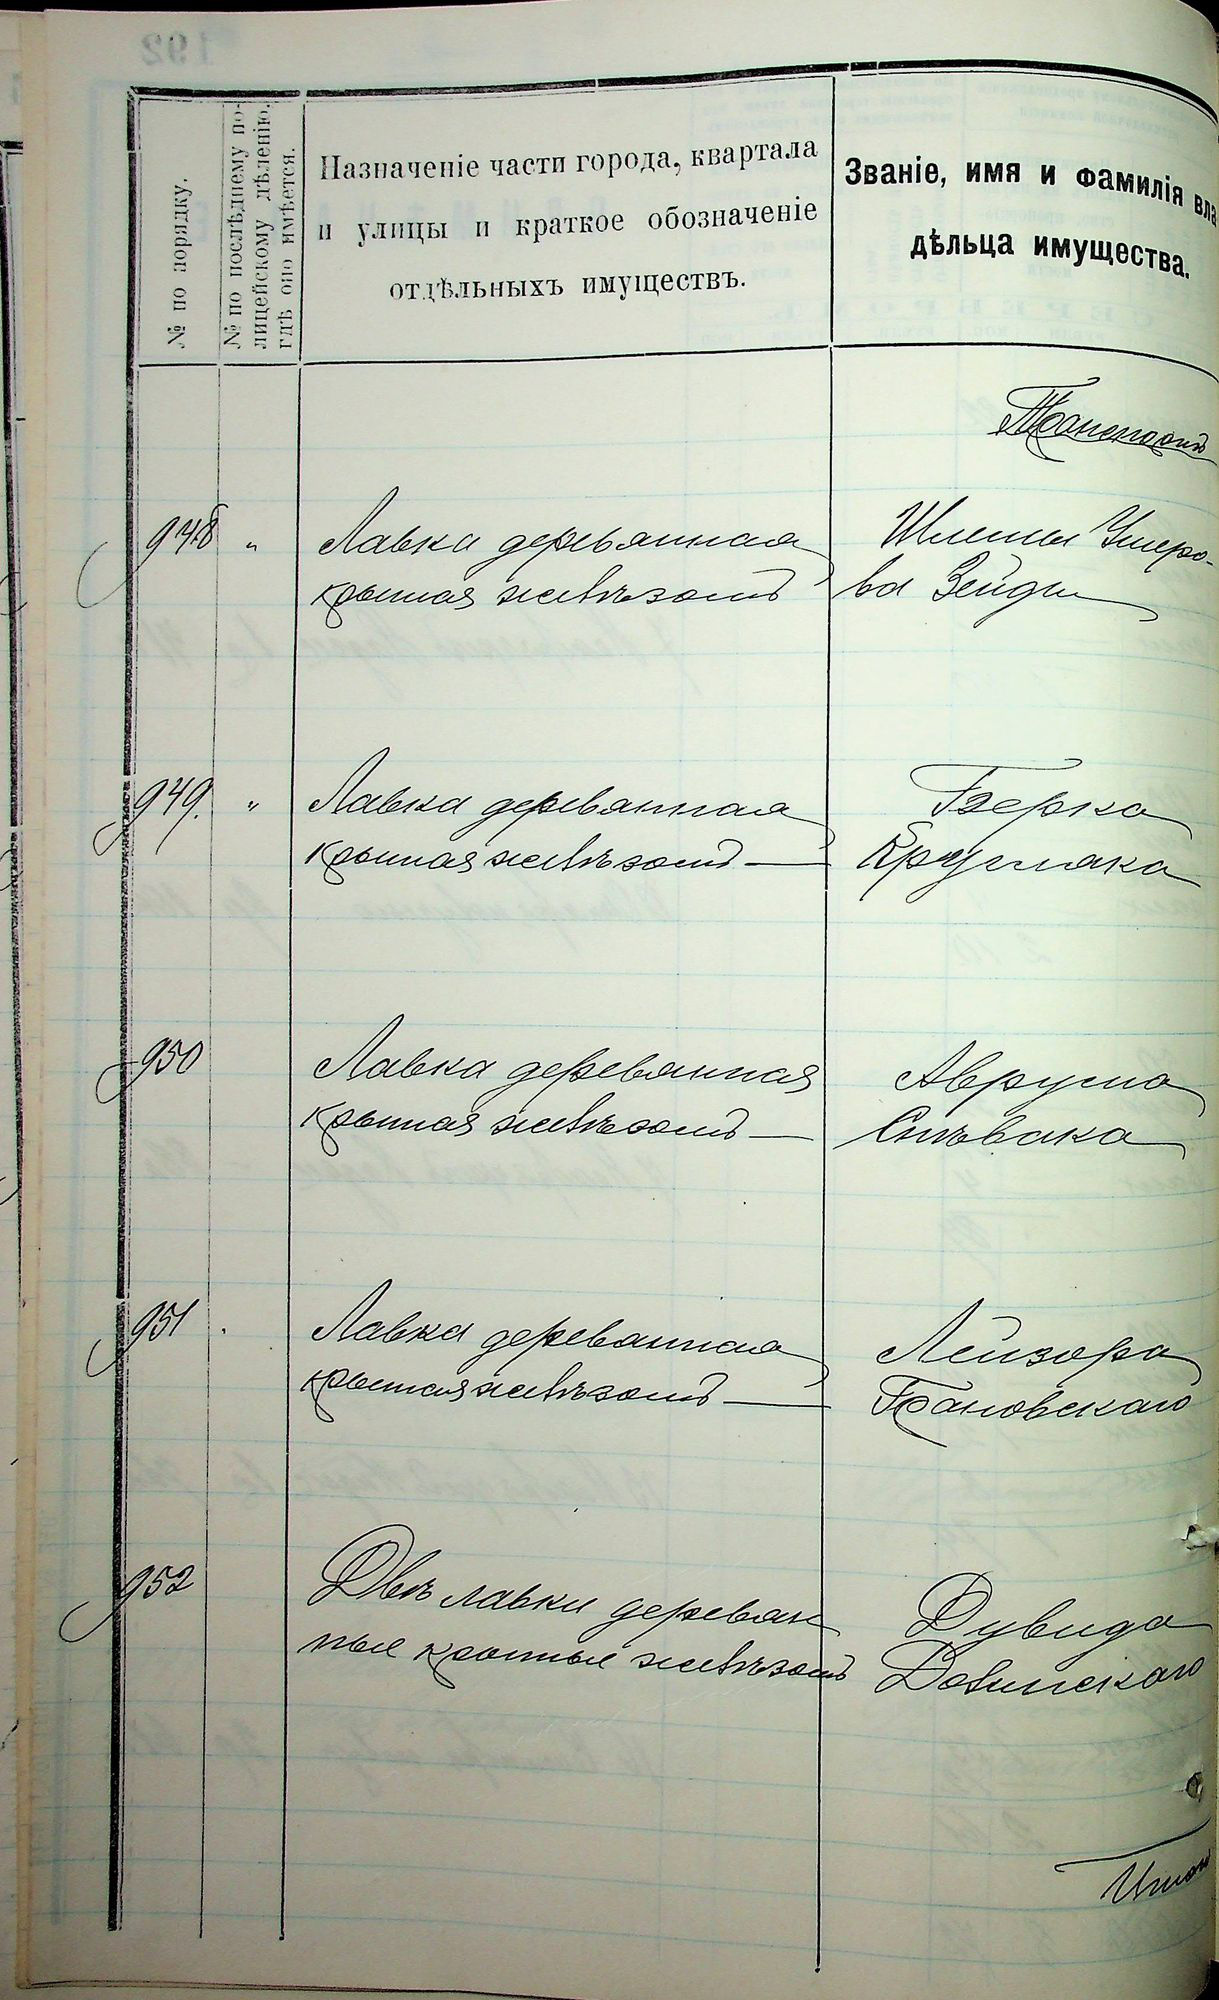 № по порядку.
№ по послѣднему по-
лицейскому дѣленію,
гдѣ оно имѣется.
Назначеніе части города, квартала
и улицы и краткое обозначеніе
отдѣльныхъ имуществъ.
Званіе, имя и фамилія вла
дѣльца имущества.
Транспортъ
948 „ Лавка деревянная
крытая желѣзомъ
Шлемы Ушеро-
ва Зейды
949. „ Лавка деревянная
крытая желѣзомъ —
Берка
Кругляка
950 Лавка деревянная
крытая желѣзомъ —
Аврума
Спѣвака
951 Лавка деревянная
крытая желѣзомъ —
Лейзора
Барановскаго
952 Двѣ лавки деревян
ные крытые желѣзомъ
Дувида
Довинскаго
Итого